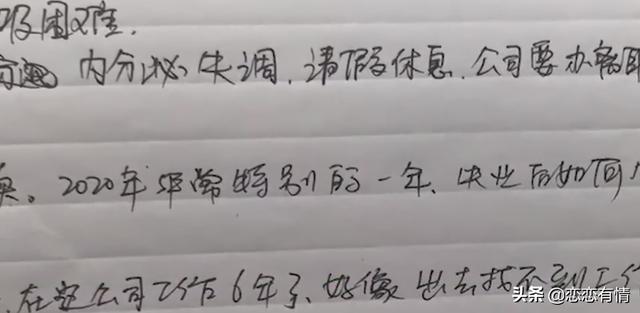 吸困难.
内分泌失调.请假休息.公司要办离职
2020年非常特别的一年、失业后如何
在这公司工作6年了、好像出去找不到工作
头条 @恋恋有情